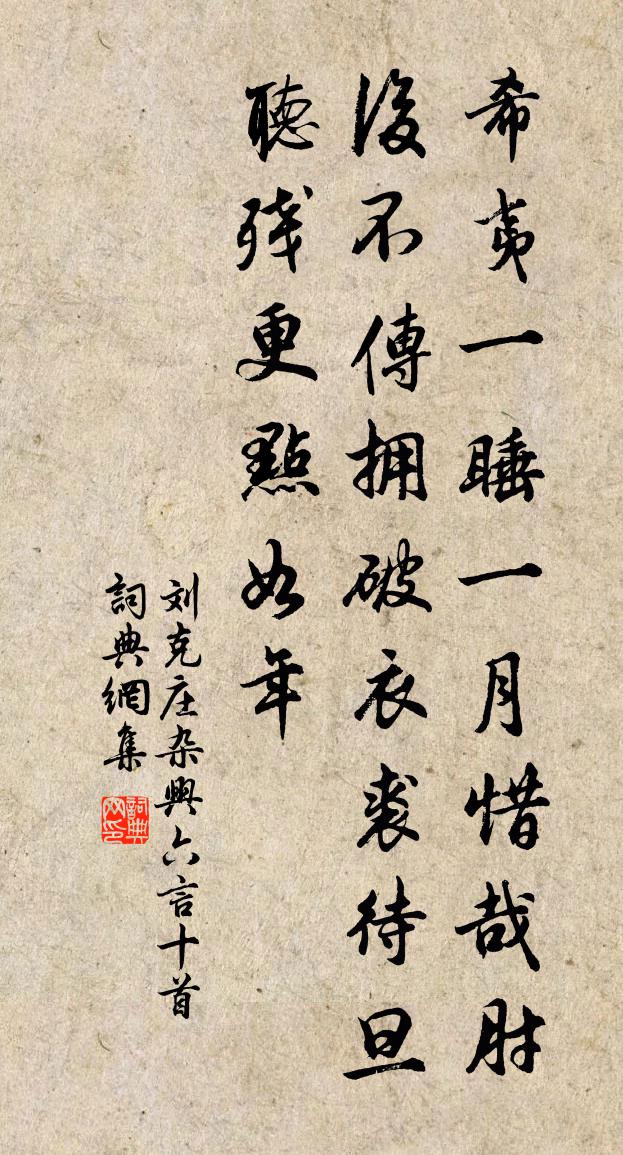 希夷一睡一月惜哉肘
後不傳拥破衣裘待旦
聽殘更點如年
刘克庄杂興六言十首
詞典網集
詞典
网印